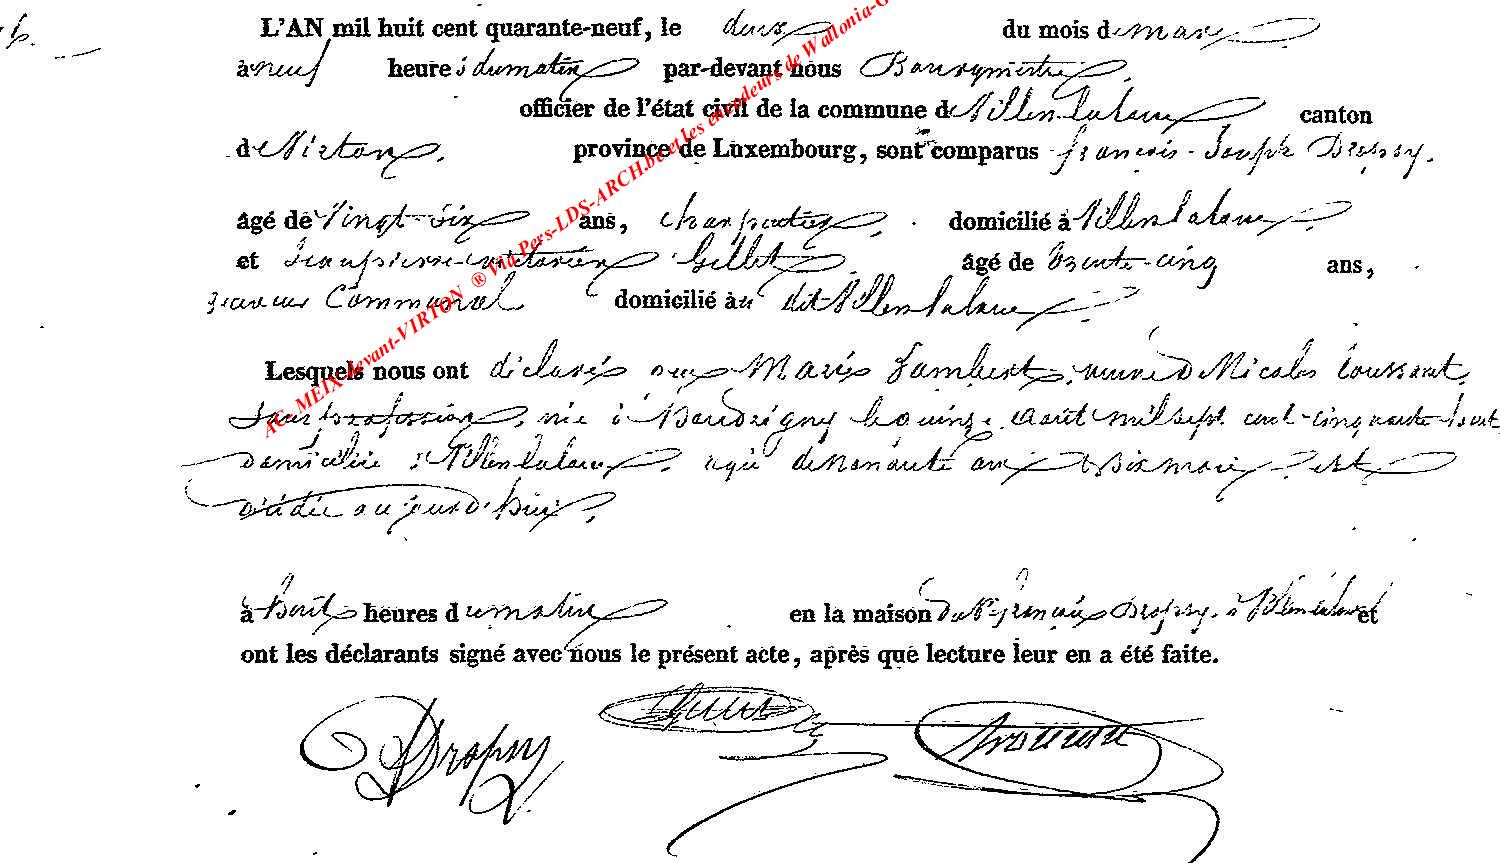 L'AN mil huit cent quarante-neuf, le deux du mois de mars
à neuf heures du matin par-devant nous Bourgmestre
officier de l'état civil de la commune de Villers-la-Loue canton
de Virton, province de Luxembourg, sont comparus françois-Joseph Dropsy,
âgé de Vingt-Six ans, charpentier, domicilié à Villers-la-Loue
et Jean pierre Gillet âgé de trente-cinq ans,
Communal domicilié au dit Villers-la-Loue
Lesquels nous ont déclaré que Marie Lambert, veuve de Nicolas toussaint,
Sans profession, née à le quinze août mil sept cent-cinquante-huit
domiciliée à Villers-la-Loue, agée de nonante ans Six mois est
décédée aujourd'hui,
à huit heures du matin en la maison du Sr françois Dropsy, à et
ont les déclarants signé avec nous le présent acte, après que lecture leur en a été faite.
Dropsy
AC. MEIX-devant-VIRTON ® Via Pers-LDS-ARCH.be et les encodeurs de Wallonia-G